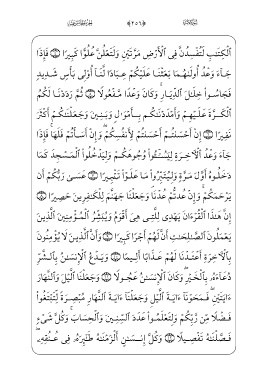 ﴿٢٥٦﴾
ٱلۡكِتَٰبِ لَتُفۡسِدُنَّ فِي ٱلۡأَرۡضِ مَرَّتَيۡنِ وَلَتَعۡلُنَّ عُلُوّٗا كَبِيرٗا ۝ فَإِذَا
جَآءَ وَعۡدُ أُولَىٰهُمَا بَعَثۡنَا عَلَيۡكُمۡ عِبَادٗا لَّنَآ أُوْلِي بَأۡسٖ شَدِيدٖ
فَجَاسُواْ خِلَٰلَ ٱلدِّيَارِۚ وَكَانَ وَعۡدٗا مَّفۡعُولٗا ۝ ثُمَّ رَدَدۡنَا لَكُمُ
ٱلۡكَرَّةَ عَلَيۡهِمۡ وَأَمۡدَدۡنَٰكُم بِأَمۡوَٰلٖ وَبَنِينَ وَجَعَلۡنَٰكُمۡ أَكۡثَرَ
نَفِيرًا ۝ إِنۡ أَحۡسَنتُمۡ أَحۡسَنتُمۡ لِأَنفُسِكُمۡۖ وَإِنۡ أَسَأۡتُمۡ فَلَهَاۚ فَإِذَا
جَآءَ وَعۡدُ ٱلۡأٓخِرَةِ لِيَسُـُٔواْ وُجُوهَكُمۡ وَلِيَدۡخُلُواْ ٱلۡمَسۡجِدَ كَمَا
دَخَلُوهُ أَوَّلَ مَرَّةٖ وَلِيُتَبِّرُواْ مَا عَلَوۡاْ تَتۡبِيرًا ۝ عَسَىٰ رَبُّكُمۡ أَن
يَرۡحَمَكُمۡۚ وَإِنۡ عُدتُّمۡ عُدۡنَاۚ وَجَعَلۡنَا جَهَنَّمَ لِلۡكَٰفِرِينَ حَصِيرًا ۝
إِنَّ هَٰذَا ٱلۡقُرۡءَانَ يَهۡدِي لِلَّتِي هِيَ أَقۡوَمُ وَيُبَشِّرُ ٱلۡمُؤۡمِنِينَ ٱلَّذِينَ
يَعۡمَلُونَ ٱلصَّٰلِحَٰتِ أَنَّ لَهُمۡ أَجۡرٗا كَبِيرٗا ۝ وَأَنَّ ٱلَّذِينَ لَا يُؤۡمِنُونَ
بِٱلۡأٓخِرَةِ أَعۡتَدۡنَا لَهُمۡ عَذَابًا أَلِيمٗا ۝ وَيَدۡعُ ٱلۡإِنسَٰنُ بِٱلشَّرِّ
دُعَآءَهُۥ بِٱلۡخَيۡرِۖ وَكَانَ ٱلۡإِنسَٰنُ عَجُولٗا ۝ وَجَعَلۡنَا ٱلَّيۡلَ وَٱلنَّهَارَ
ءَايَتَيۡنِۖ فَمَحَوۡنَآ ءَايَةَ ٱلَّيۡلِ وَجَعَلۡنَآ ءَايَةَ ٱلنَّهَارِ مُبۡصِرَةٗ لِّتَبۡتَغُواْ
فَضۡلٗا مِّن رَّبِّكُمۡ وَلِتَعۡلَمُواْ عَدَدَ ٱلسِّنِينَ وَٱلۡحِسَابَۚ وَكُلَّ شَيۡءٖ
فَصَّلۡنَٰهُ تَفۡصِيلٗا ۝ وَكُلَّ إِنسَٰنٍ أَلۡزَمۡنَٰهُ طَٰٓئِرَهُۥ فِي عُنُقِهِۦۖ